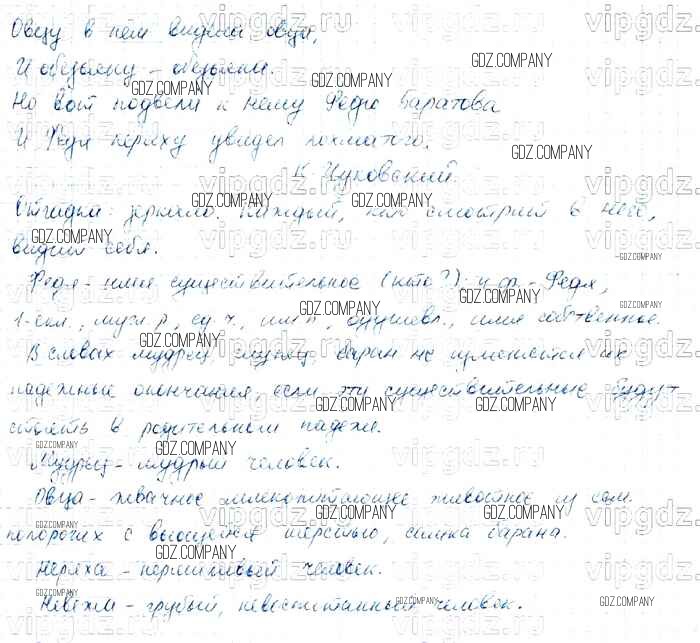 Овцу в нём видели овцы,
И обезьяну – обезьяны.
Но вот подвели к нему Федю Баратова
И Федя неряху увидел лохматого.
К. Чуковский.
Отгадка: зеркало. Каждый, кто смотрит в него,
видит себя.
Федя – имя существительное (кто?) н.ф. – Федя,
1-скл., муж. р., ед. ч., им. п., одушевл., имя собственное.
В словах мудрец, барин не изменятся их
падежные окончания, если эти существительные будут
стоять в родительном падеже.
Мудрец – мудрый человек.
Овца – жвачное млекопитающее животное из сем.
полорогих с вьющейся шерстью, самка барана.
Неряха – неряшливый человек.
Невежа – грубый, невоспитанный человек.
GDZ.COMPANY
vipgdz.ru